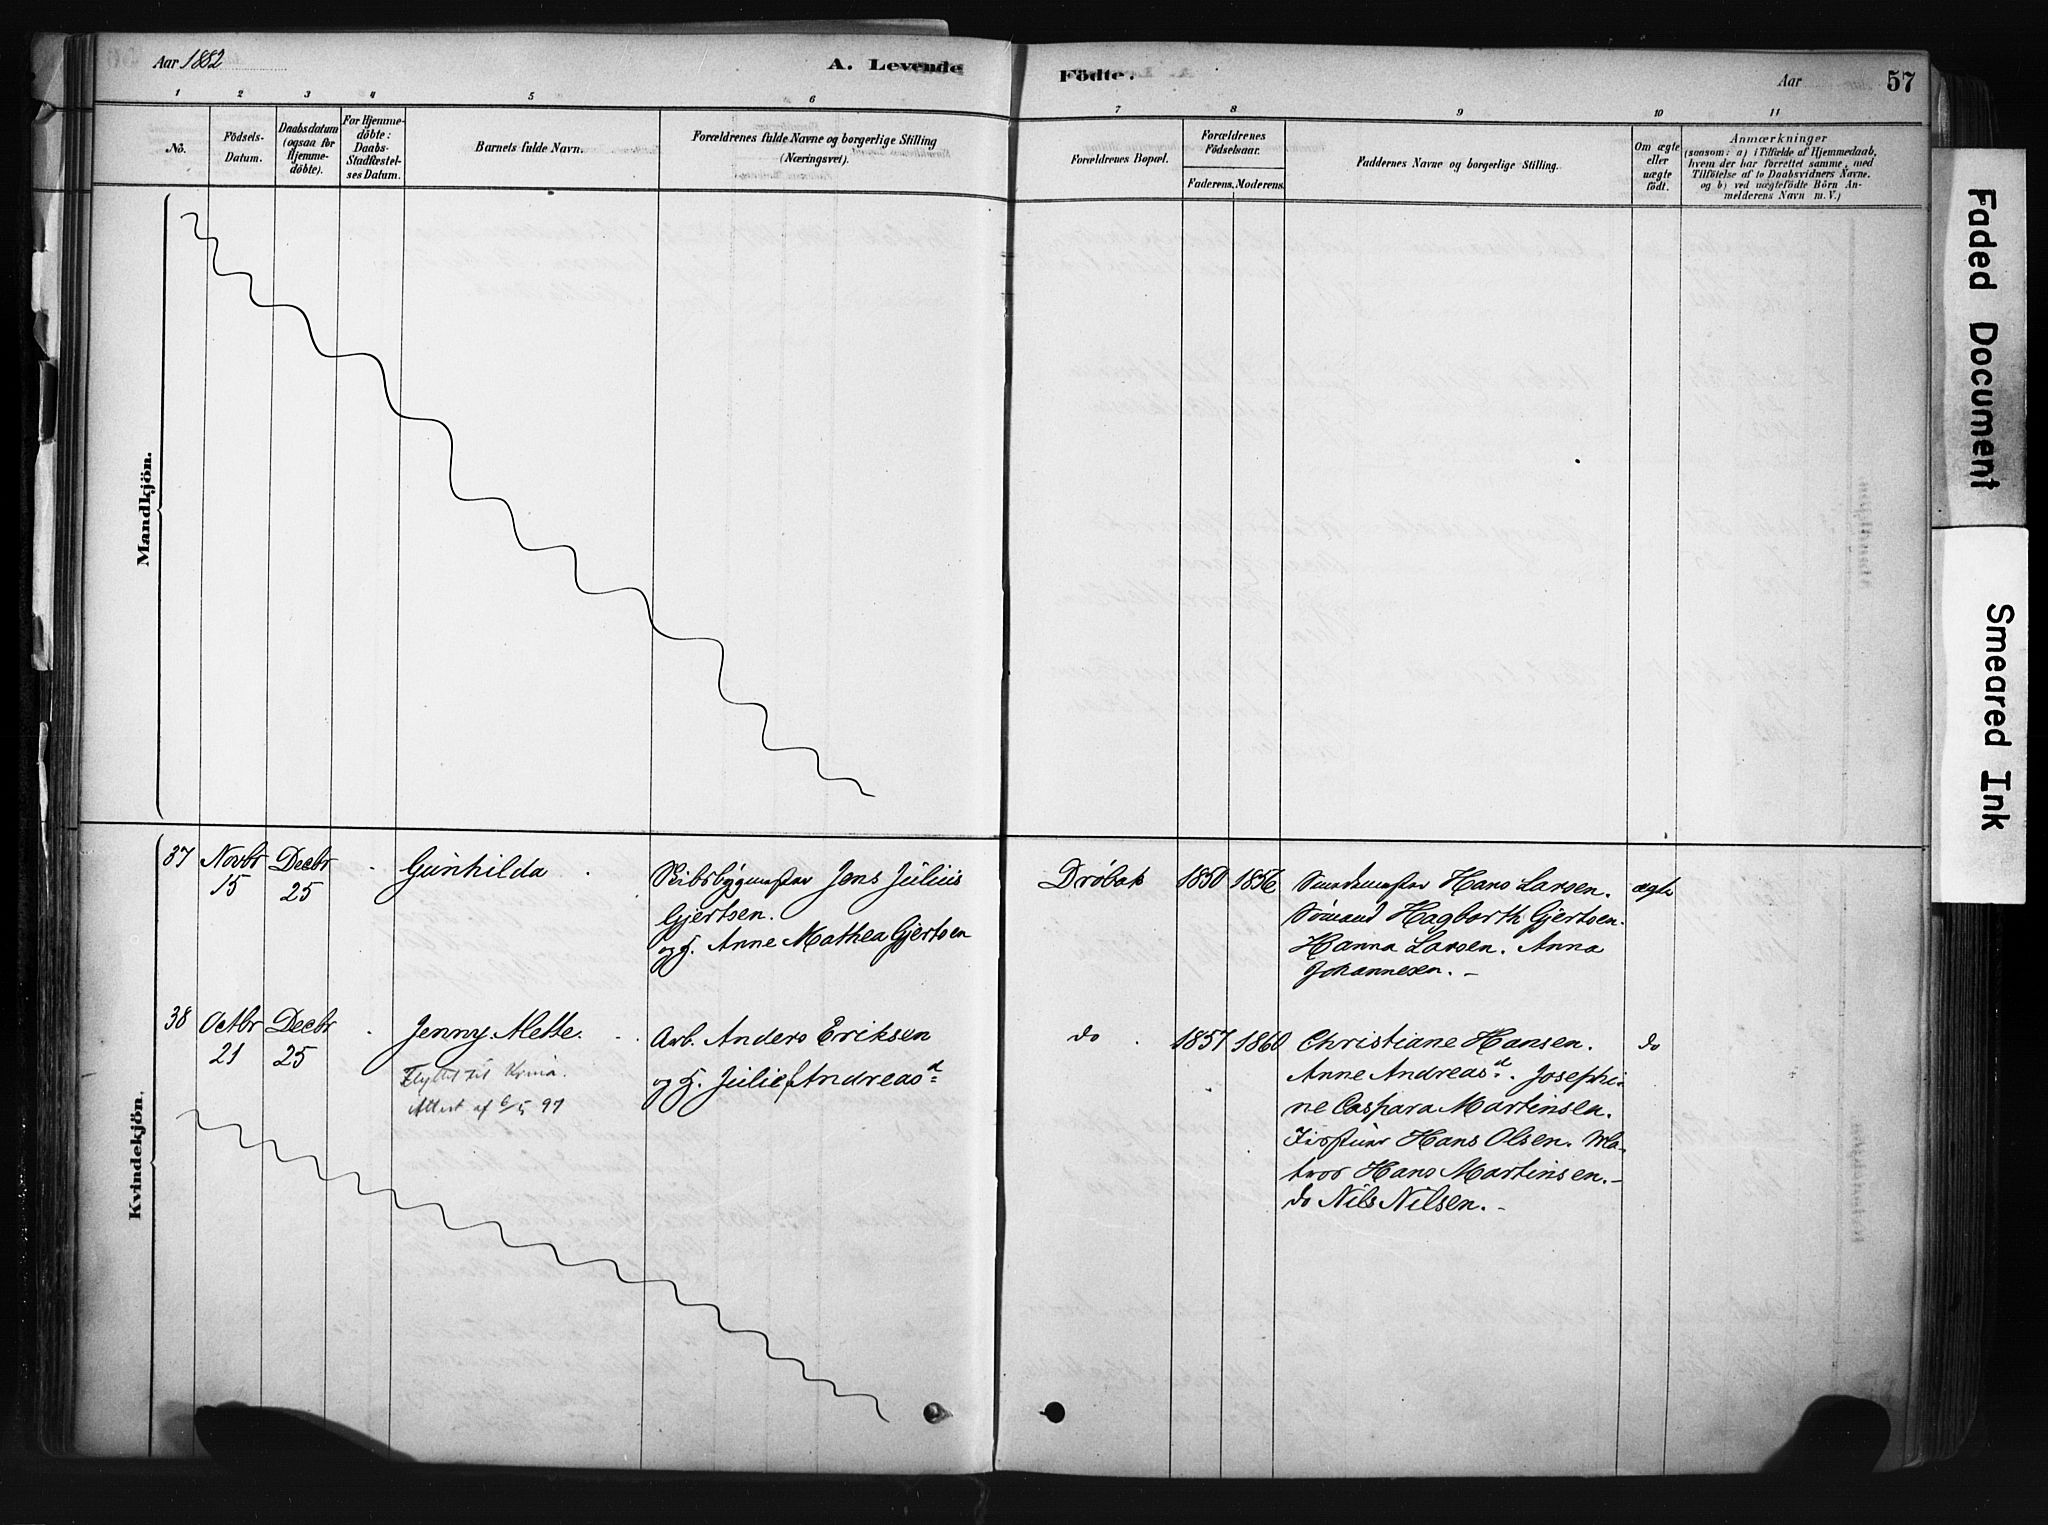 Aar 1882
A. Levende
Födte.
Aar
57
1 2 3 4 5 6 7 8 9 10 11
No.
Födsels-
Datum.
Daabsdatum
(ogsaa for
Hjemme-
døbte).
For Hjemme-
døbte:
Daabs-
Stadfæstel-
ses Datum.
Barnets fulde Navn.
Forældrenes fulde Navne og borgerlige Stilling
(Næringsvei).
Forældrenes Bopæl.
Forældrenes
Födselsaar.
Faderens. Moderens.
Faddernes Navne og borgerlige Stilling.
Om ægte
eller
uægte
født.
Anmærkninger
(saasom: a) i Tilfælde af Hjemmedaab,
hvem der har forrettet samme, med
Tilföielse af to Daabsvidners Navne,
og b) ved uægtefödte Börn An-
melderens Navn m. V.)
Mandkjön.
Kvindekjön.
37
Novbr
15
Decbr
25
Gunhilda
Skibsbygmester Jens Julius
Gjertsen.
og H. Anne Mathea Gjertsen
Drøbak
1850
1856
Hans Larsen.
Sømand Hagbarth Gjertsen.
Hanna Larsen. Anna
Johannesen. -
ægte
38
Octbr
21
Decbr
25
Jenny Mette.
Flyttet til Krnia.
Attest af 6/5 97
Arb. Anders Eriksen
og H. Julie Andreasd
do
1857
1860
Christiane Hansen.
Anne Andreasd. Josephi-
ne Caspara Martinsen.
Hans Olsen. Ma-
tros Hans Martinsen. -
do Nils Nilsen. -
do
Faded Document
Smeared Ink